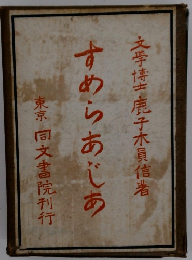 文學博士 鹿子木員信著
すめらあじあ
東京 同文書院刊行